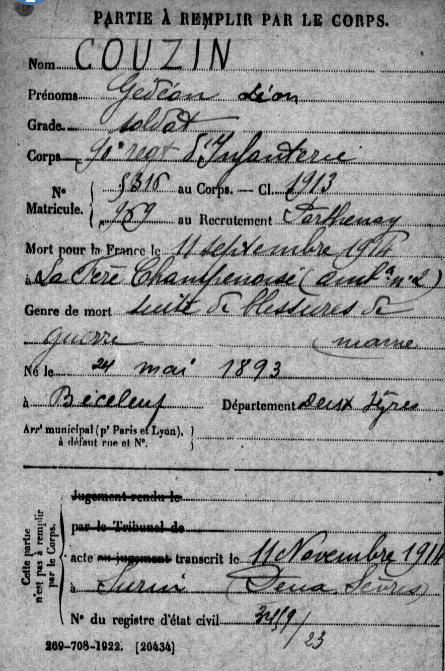 PARTIE À REMPLIR PAR LE CORPS.
Nom COUZIN
Prénoms Gédéon Léon
Grade soldat
Corps 90e regt d'Infanterie
N° Matricule. { 5316 au Corps. — Cl. 1913
969 au Recrutement Parthenay
Mort pour la France le 11 septembre 1914
à La Fère Champenoise (ambce n° 2)
Genre de mort suite de blessures de
guerre (marne
Né le 24 mai 1893
à Béceleuf Département deux Sèvres
Arrt municipal (pr Paris et Lyon), à défaut rue et N°. }
Cette partie n'est pas à remplir par le Corps.
Jugement rendu le
par le Tribunal de
acte ou jugement transcrit le 11 Novembre 1914
à Surin (Deux Sèvres
N° du registre d'état civil /23
269-708-1922. [26434]